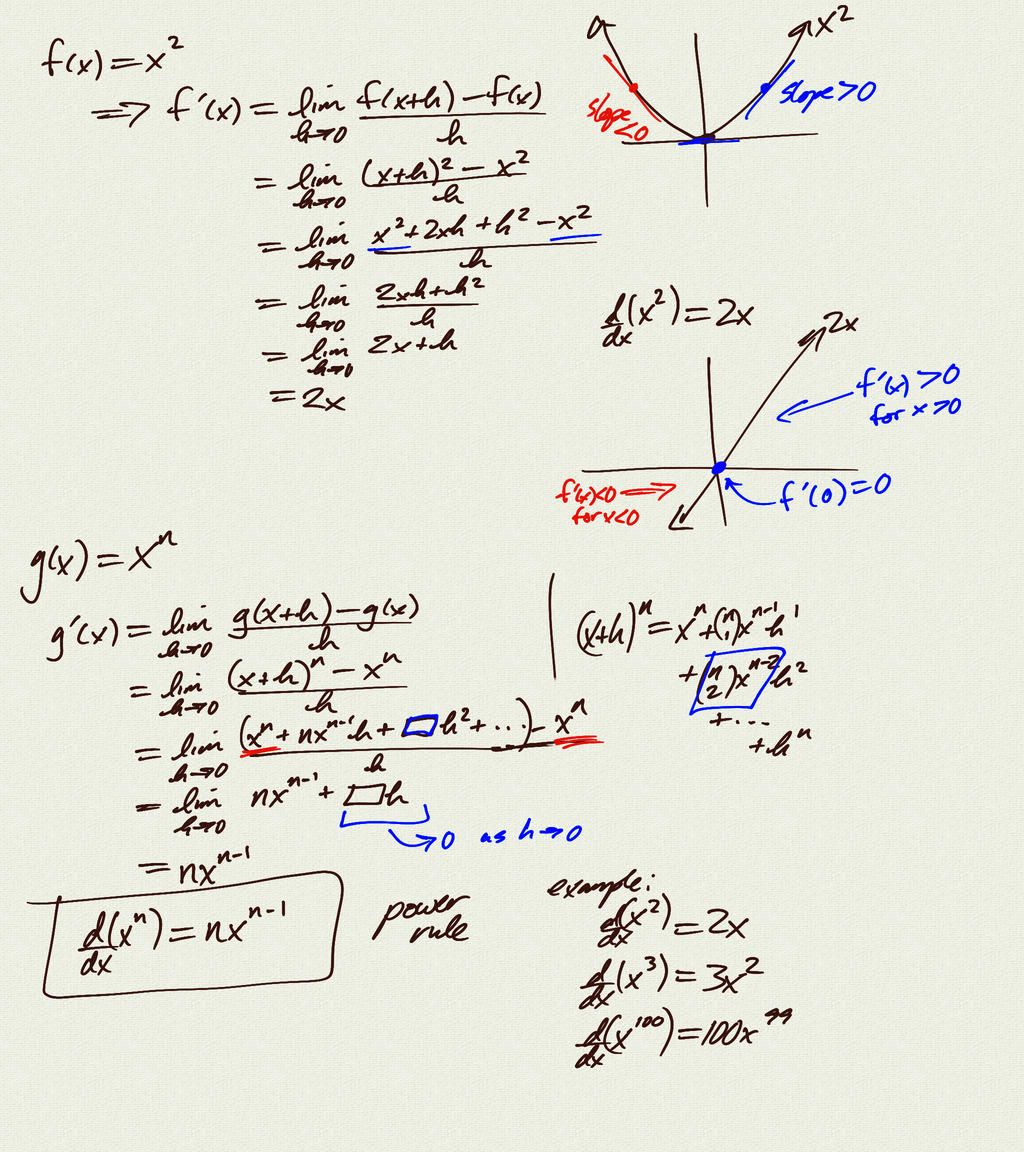 f(x) = x²
⇒ f'(x) = lim h→0 (f(x+h) − f(x))/h
= lim h→0 ((x+h)² − x²)/h
= lim h→0 (x² + 2xh + h² − x²)/h
= lim h→0 (2xh + h²)/h
= lim h→0 2x + h
= 2x
x²
slope <0
slope >0
d/dx (x²) = 2x
2x
f'(x) > 0
for x > 0
f'(x) < 0
for x < 0
f'(0) = 0
g(x) = xⁿ
g'(x) = lim h→0 (g(x+h) − g(x))/h
= lim h→0 ((x+h)ⁿ − xⁿ)/h
= lim h→0 ((xⁿ + nxⁿ⁻¹h + □h² + ...) − xⁿ)/h
= lim h→0 nxⁿ⁻¹ + □h
→ 0 as h → 0
= nxⁿ⁻¹
d/dx (xⁿ) = nxⁿ⁻¹
power
rule
(x+h)ⁿ = xⁿ + (n 1)xⁿ⁻¹h¹
+ (n 2)xⁿ⁻²h²
+ ...
+ hⁿ
example:
d/dx (x²) = 2x
d/dx (x³) = 3x²
d/dx (x¹⁰⁰) = 100x⁹⁹